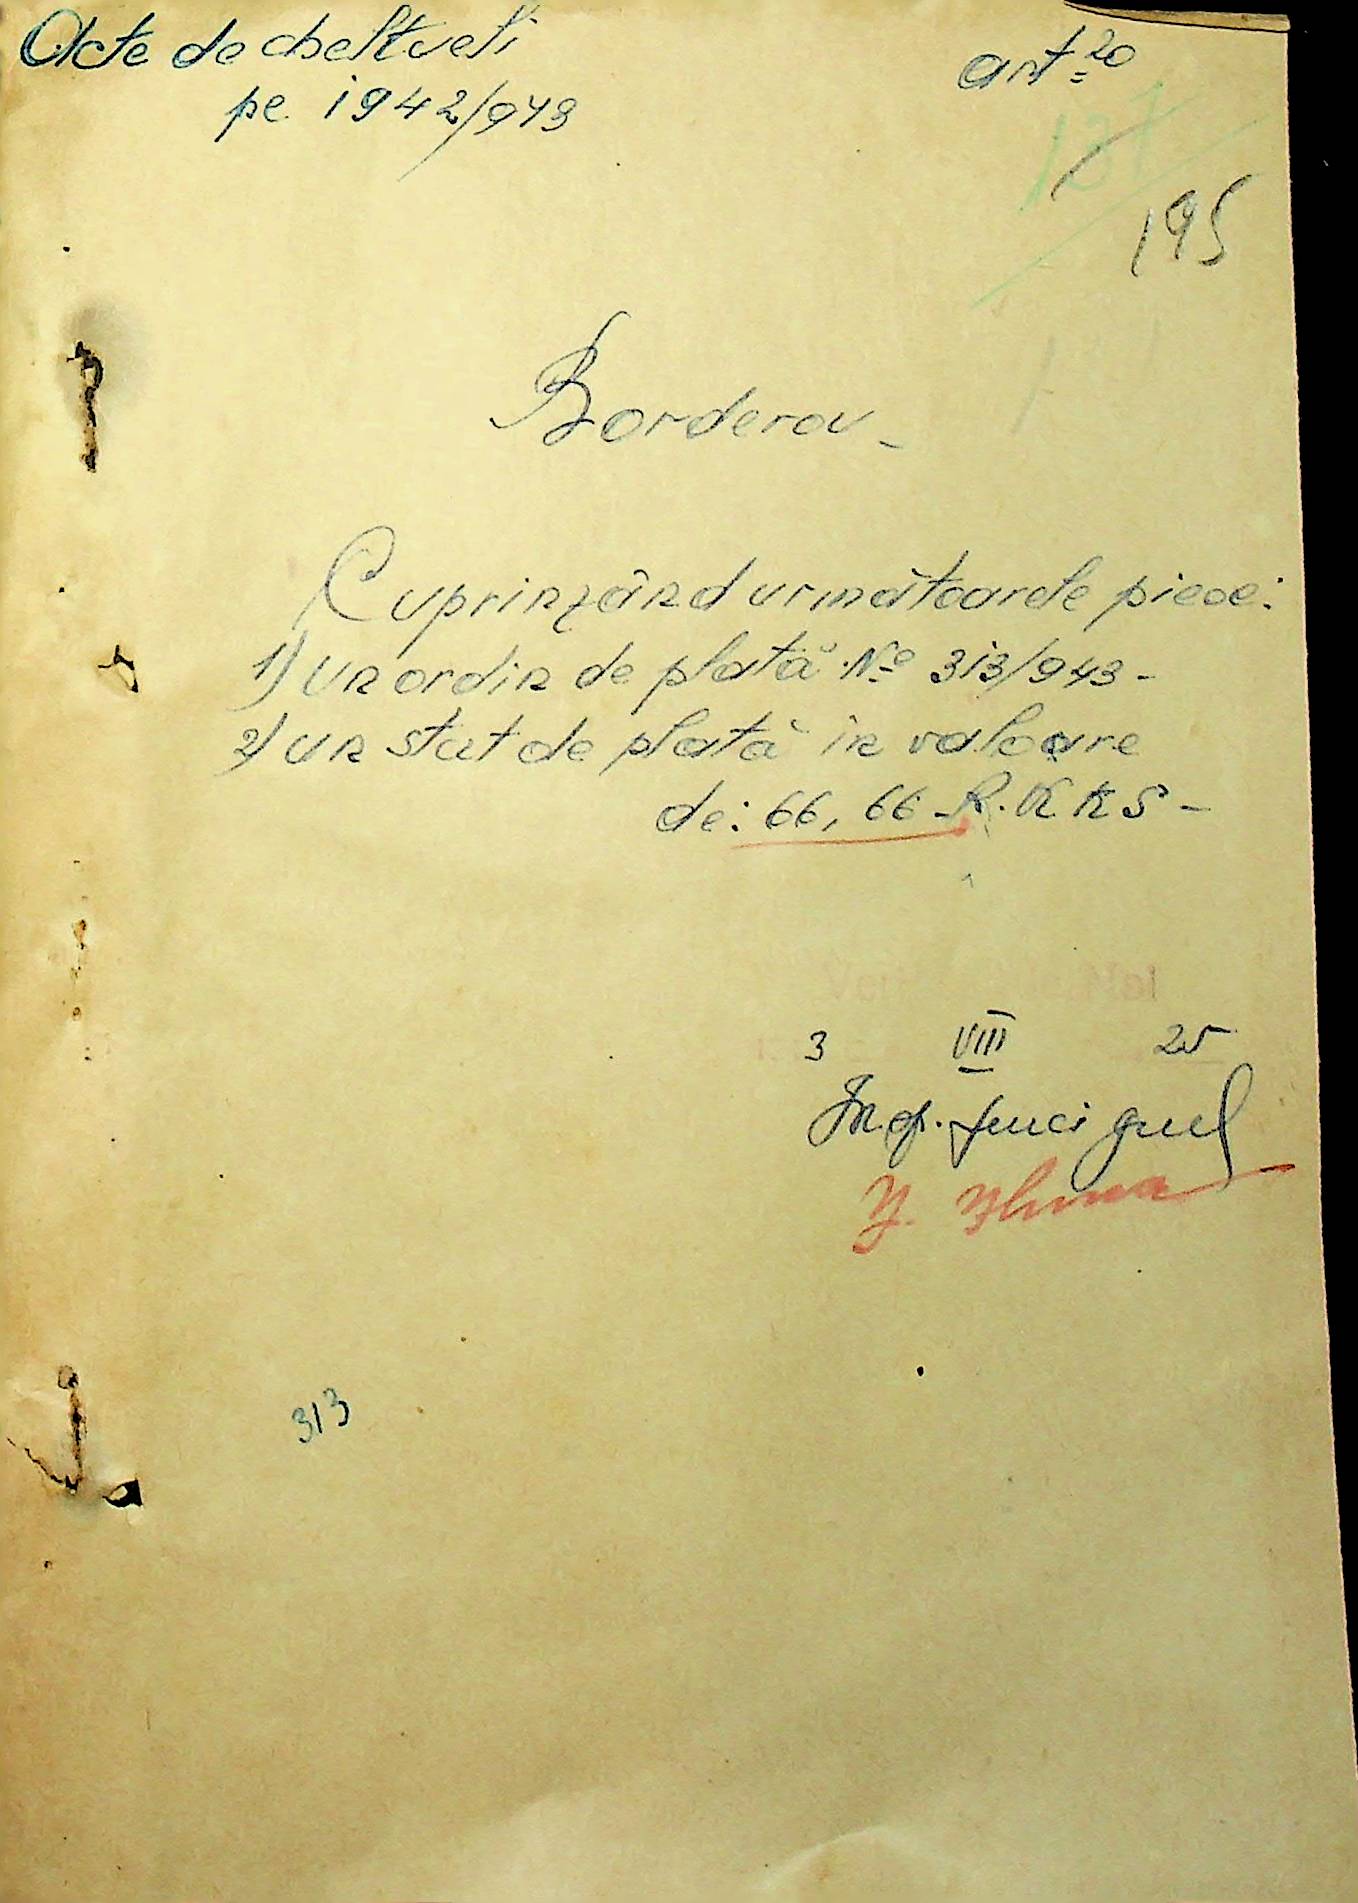 Acte de cheltueli
pe 1942/943
art. 20
131
195
Borderou -
Cuprinzând următoarele piese:
1) un ordin de plată No 313/943 -
2) un stat de plată în valoare
de: 66,66 R.KKS -
3 VIII 25
313